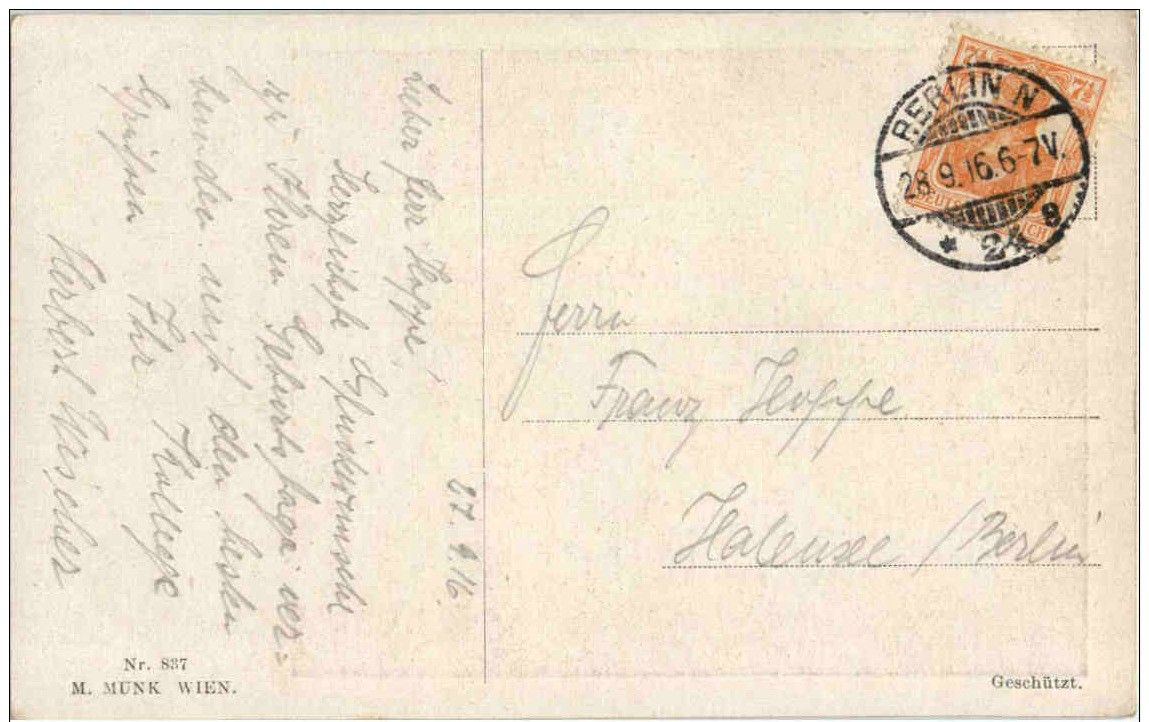 27. 9. 16.
Lieber Herr Hoppe,
Herzlichste Glückwünsche
zu Ihrem Geburtstage ver-
bunden mit den besten
Grüßen Ihr Kollege
Herbert Wascher
Nr. 837
M. MUNK WIEN.
7½
BERLIN N
28.9.16.6-7V.
* 24 e
DEUTSCHES REICH
Herrn
Franz Hoppe
Halensee / Berlin
Geschützt.